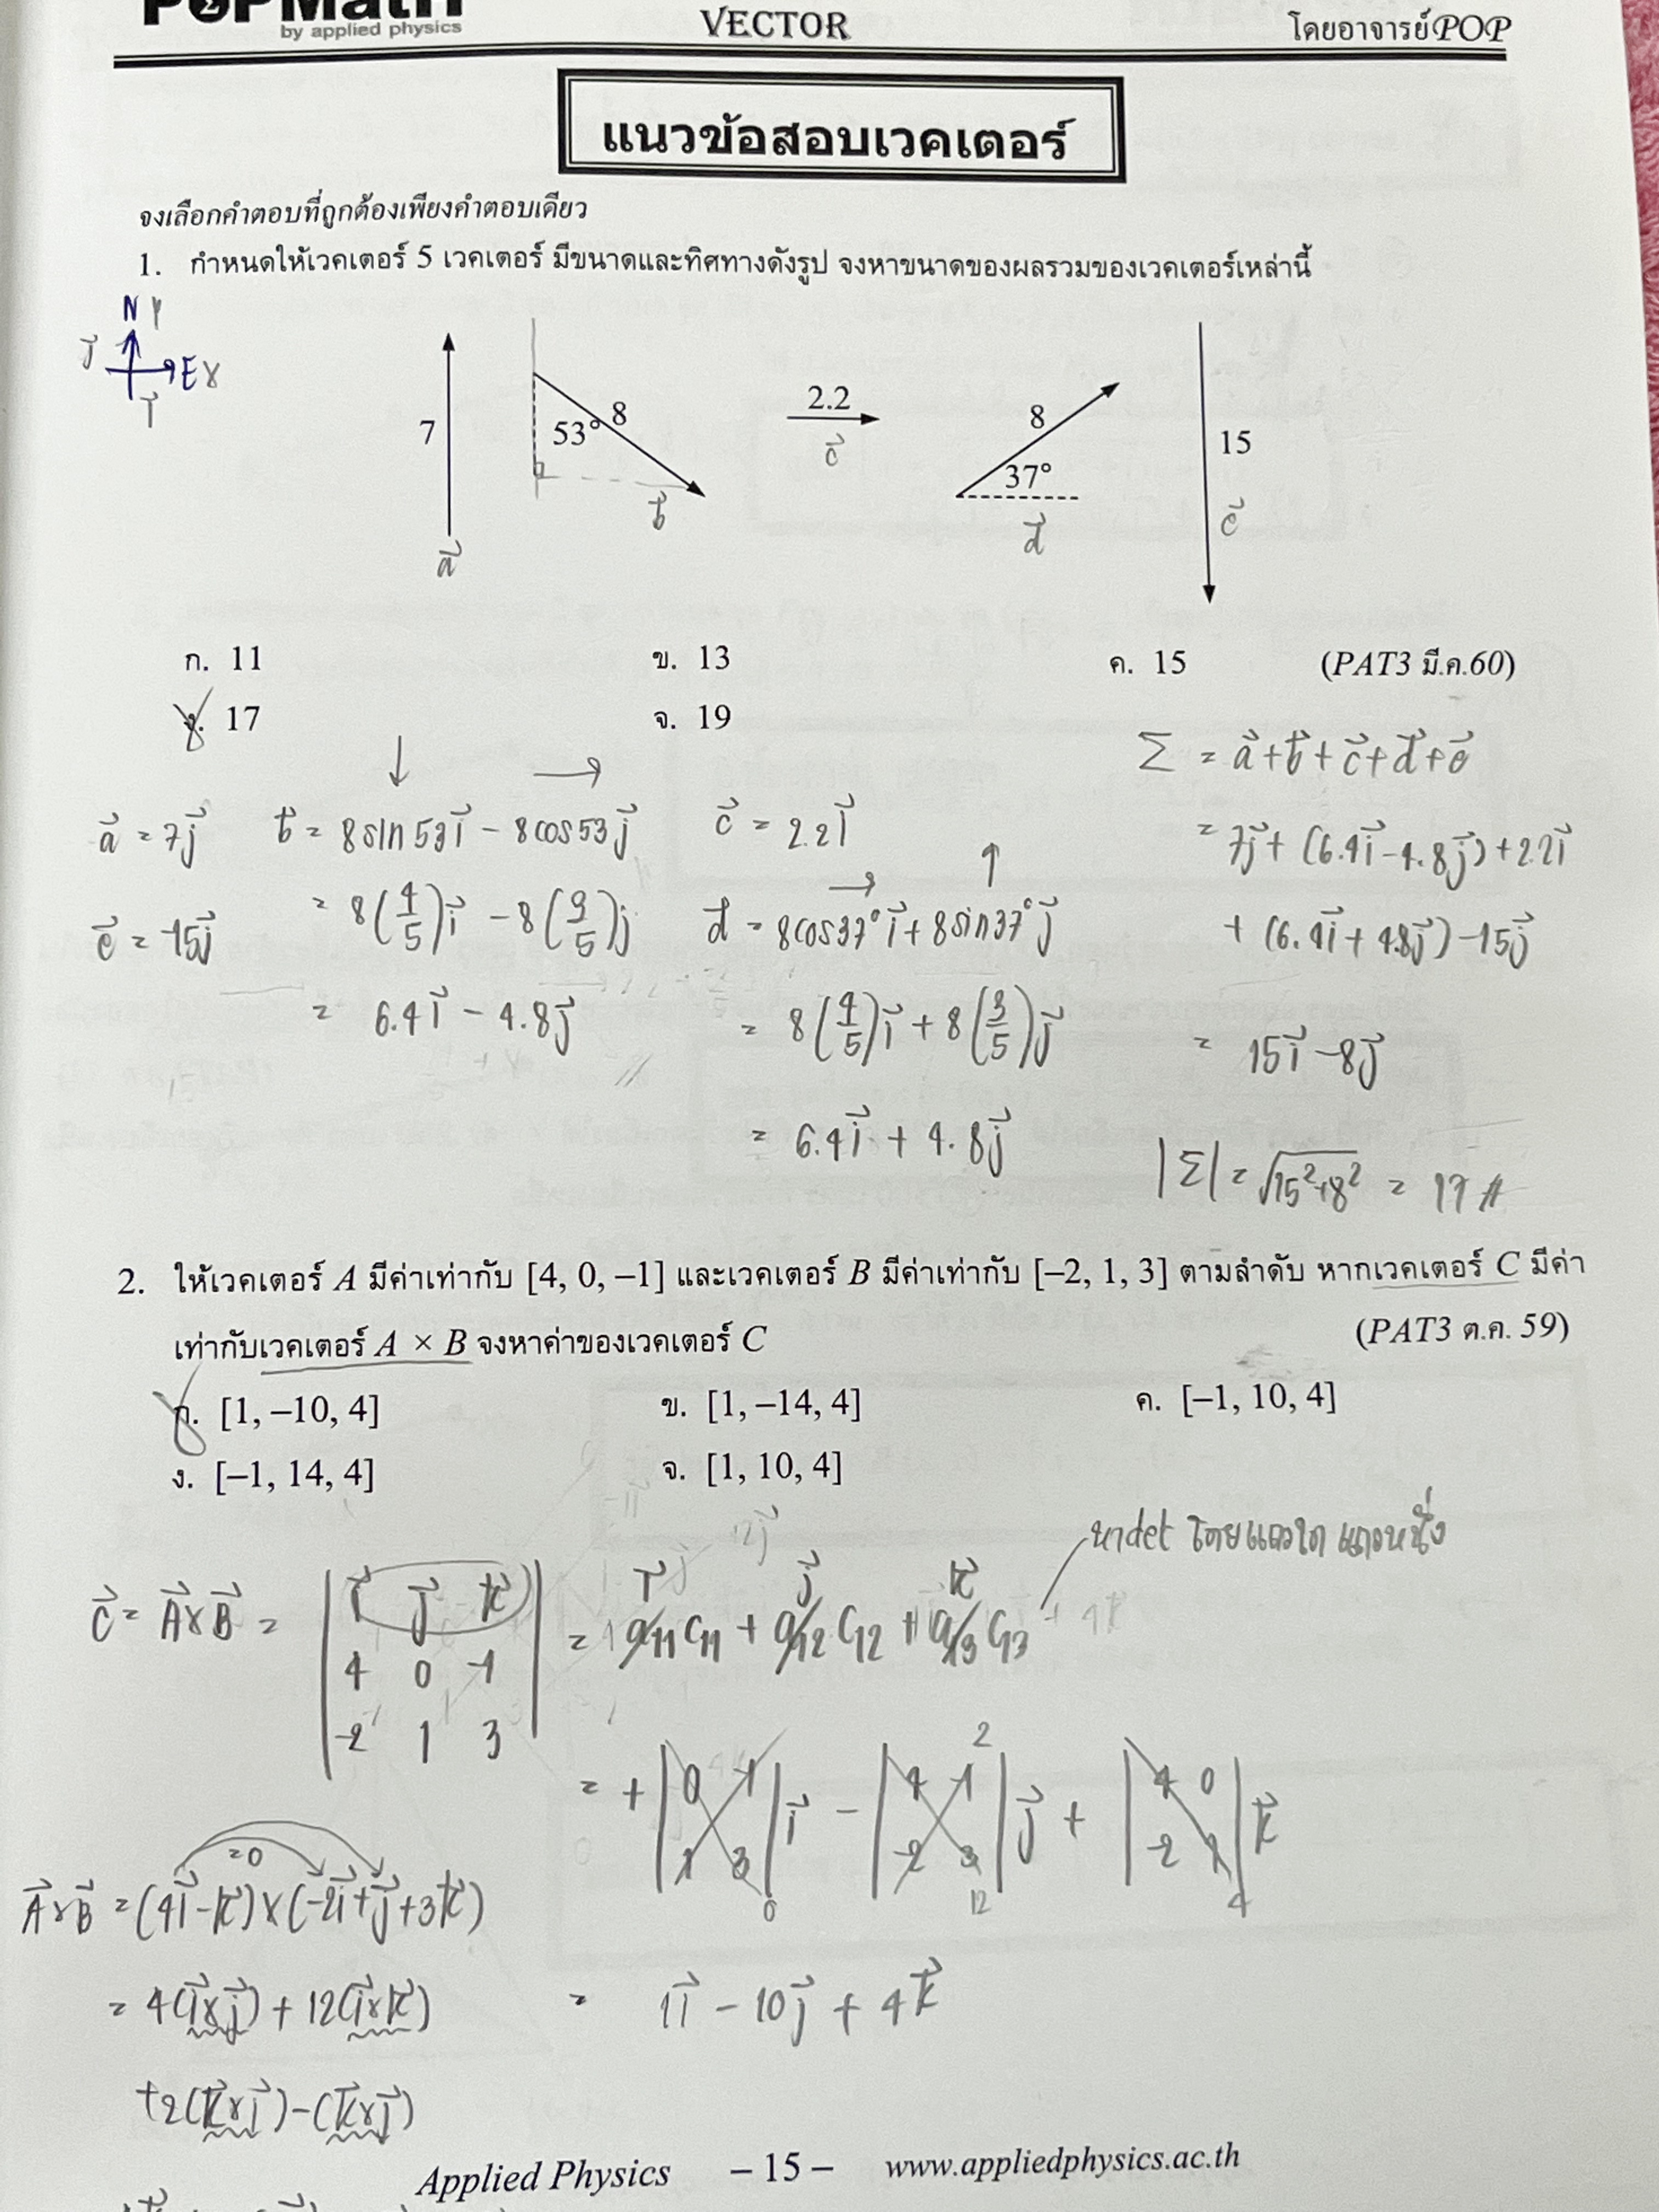 POPMath
by applied physics
VECTOR
โดยอาจารย์POP
แนวข้อสอบเวคเตอร์
จงเลือกคำตอบที่ถูกต้องเพียงคำตอบเดียว
1. กำหนดให้เวคเตอร์ 5 เวคเตอร์ มีขนาดและทิศทางดังรูป จงหาขนาดของผลรวมของเวคเตอร์เหล่านี้
N y
j⃗ E x
i⃗
7 53° 8 2.2 8 37° 15
a⃗ b⃗ c⃗ d⃗ e⃗
ก. 11 ข. 13 ค. 15 (PAT3 มี.ค.60)
ง. 17 จ. 19
Σ = a⃗ + b⃗ + c⃗ + d⃗ + e⃗
a⃗ = 7j⃗ b⃗ = 8sin53i⃗ − 8cos53j⃗ c⃗ = 2.2i⃗ = 7j⃗ + (6.4i⃗ − 4.8j⃗) + 2.2i⃗
e⃗ = −15j⃗ = 8(4/5)i⃗ − 8(3/5)j⃗ d⃗ = 8cos37°i⃗ + 8sin37°j⃗ + (6.4i⃗ + 4.8j⃗) − 15j⃗
= 6.4i⃗ − 4.8j⃗ = 8(4/5)i⃗ + 8(3/5)j⃗ = 15i⃗ − 8j⃗
= 6.4i⃗ + 4.8j⃗ |Σ| = √15²+8² = 17 #
2. ให้เวคเตอร์ A มีค่าเท่ากับ [4, 0, –1] และเวคเตอร์ B มีค่าเท่ากับ [–2, 1, 3] ตามลำดับ หากเวคเตอร์ C มีค่า
เท่ากับเวคเตอร์ A × B จงหาค่าของเวคเตอร์ C (PAT3 ต.ค. 59)
ก. [1, –10, 4] ข. [1, –14, 4] ค. [–1, 10, 4]
ง. [–1, 14, 4] จ. [1, 10, 4]
หาdet โดยแถวใดแถวหนึ่ง
i⃗ j⃗ k⃗
C⃗ = A⃗×B⃗ = | i⃗ j⃗ k⃗ | = a11 C11 + a12 C12 + a13 C13
4 0 −1
−2 1 3
2
= + | 0 −1 | i⃗ − | 4 −1 | j⃗ + | 4 0 | k⃗
1 3 −2 3 −2 1
0 12 4
=0
A⃗×B⃗ = (4i⃗ − k⃗) × (−2i⃗ + j⃗ + 3k⃗)
= 4(i⃗×j⃗) + 12(i⃗×k⃗) = 1i⃗ − 10j⃗ + 4k⃗
+2(k⃗×i⃗) − (k⃗×j⃗)
Applied Physics – 15 – www.appliedphysics.ac.th